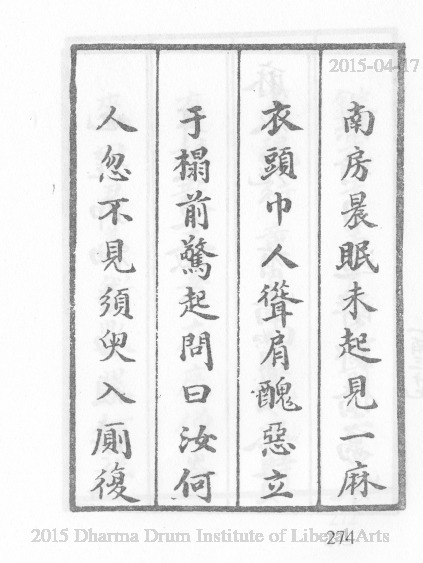 南房晨眠未起見一麻
衣頭巾人聳肩醜惡立
于榻前驚起問曰汝何
人忽不見須臾入厠復
2015-04-17
2015 Dharma Drum Institute of Liberal Arts
274